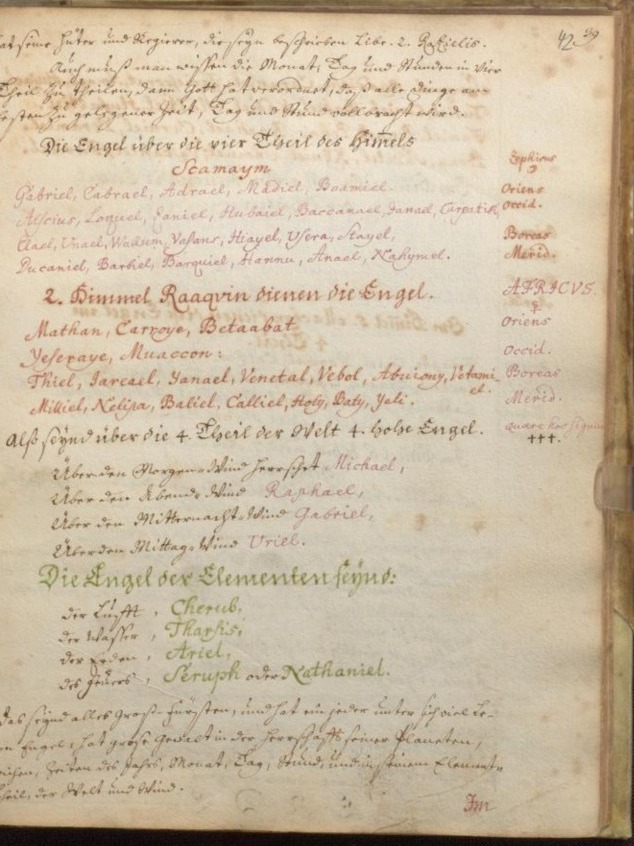 42 39
hat seine Hüter und Regierer, die seyn beschrieben Libr. 2. Razielis.
Auch muß man wissen die Monat, Tag und Stunden in vier
Theil zu theilen, dann Gott hat verordnet, daß alle dinge am
besten zu gelegener Zeit, Tag und Stund vollbracht wird.
Die Engel über die vier Theil des Him̅els
Scamaym
Zephirus
Gabriel, Cabrael, Adrael, Mediel, Boamiel.
Oriens
Loquel, Zaniel, Hubaiel, Baccanael, Janael, Carpatiel,
Occid.
Aael, Unael, Wallum, Vasans, Hiayel, Usera, Stayel,
Boreas
Ducaniel, Barbiel, Barquiel, Hannu, Anael, Nahymel.
Merid.
2. Himmel Raaqvin dienen die Engel.
AFRICUS
Mathan, Carpoye, Betaabat
Oriens
Yeseraye, Muaccon:
Occid.
Thiel, Jareael, Yanael, Venetal, Vebol, Abuiony, Vetamiel.
Boreas
Milliel, Nelipa, Baliel, Calliel, Holy, Baty, Jeli.
Merid.
Alß seynd über die 4. Theil der Welt 4. hohe Engel.
quare hoc signum
+++.
Über den Morgen=Wind herrschet Michael,
Über den Abend=Wind Raphael,
Über den Mitternacht=Wind Gabriel,
Über den Mittag=Wind Uriel.
Die Engel der Elementen seynd:
der Lufft, Cherub,
der Wasser, Tharsis,
der Erden, Ariel,
des Feuers, Seruph oder Nathaniel.
Das seynd alles Groß=Fürsten, und hat ein jeder unter sich viel Le=
Engel, hat große Gewalt in der Herrschafft seiner Planeten,
Zeichen, Zeiten des Jahrs, Monat, Tag, Stund, und in seinem Element=
theil, der Welt und Wind.
Im